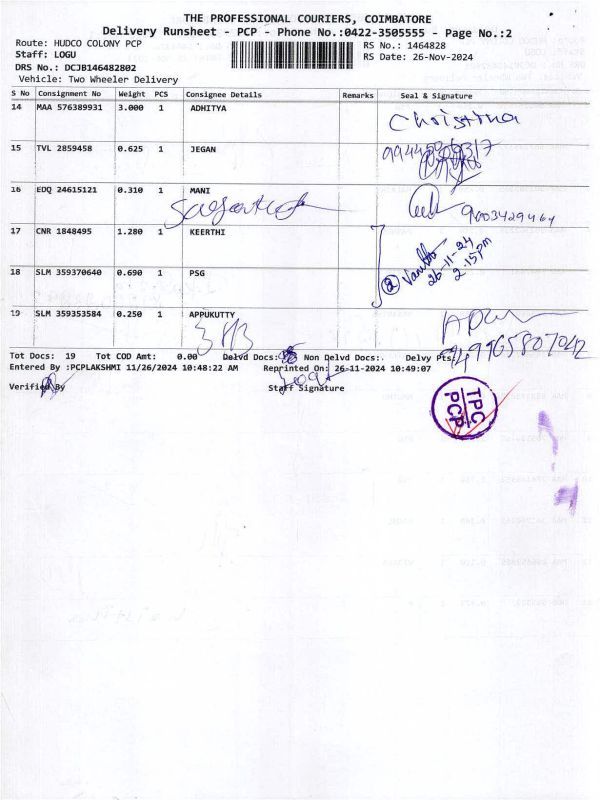 THE PROFESSIONAL COURIERS, COIMBATORE
Delivery Runsheet - PCP - Phone No.:0422-3505555 - Page No.:2
Route: HUDCO COLONY PCP RS No.: 1464828
Staff: LOGU RS Date: 26-Nov-2024
DRS No.: DCJB146482802
Vehicle: Two Wheeler Delivery
S No Consignment No Weight PCS Consignee Details Remarks Seal & Signature
14 MAA 576389931 3.000 1 ADHITYA
Christina
15 TVL 2859458 0.625 1 JEGAN
16 EDQ 24615121 0.310 1 MANI
9003429464
17 CNR 1848495 1.280 1 KEERTHI
② Vanitha
26-11-24
2.15pm
18 SLM 359370640 0.690 1 PSG
19 SLM 359353584 0.250 1 APPUKUTTY
949965807042
Tot Docs: 19 Tot COD Amt: 0.00 Delvd Docs: Non Delvd Docs:. Delvy Pts:
Entered By :PCPLAKSHMI 11/26/2024 10:48:22 AM Reprinted On: 26-11-2024 10:49:07
Logu
Verified By Staff Signature
TPC
PCP